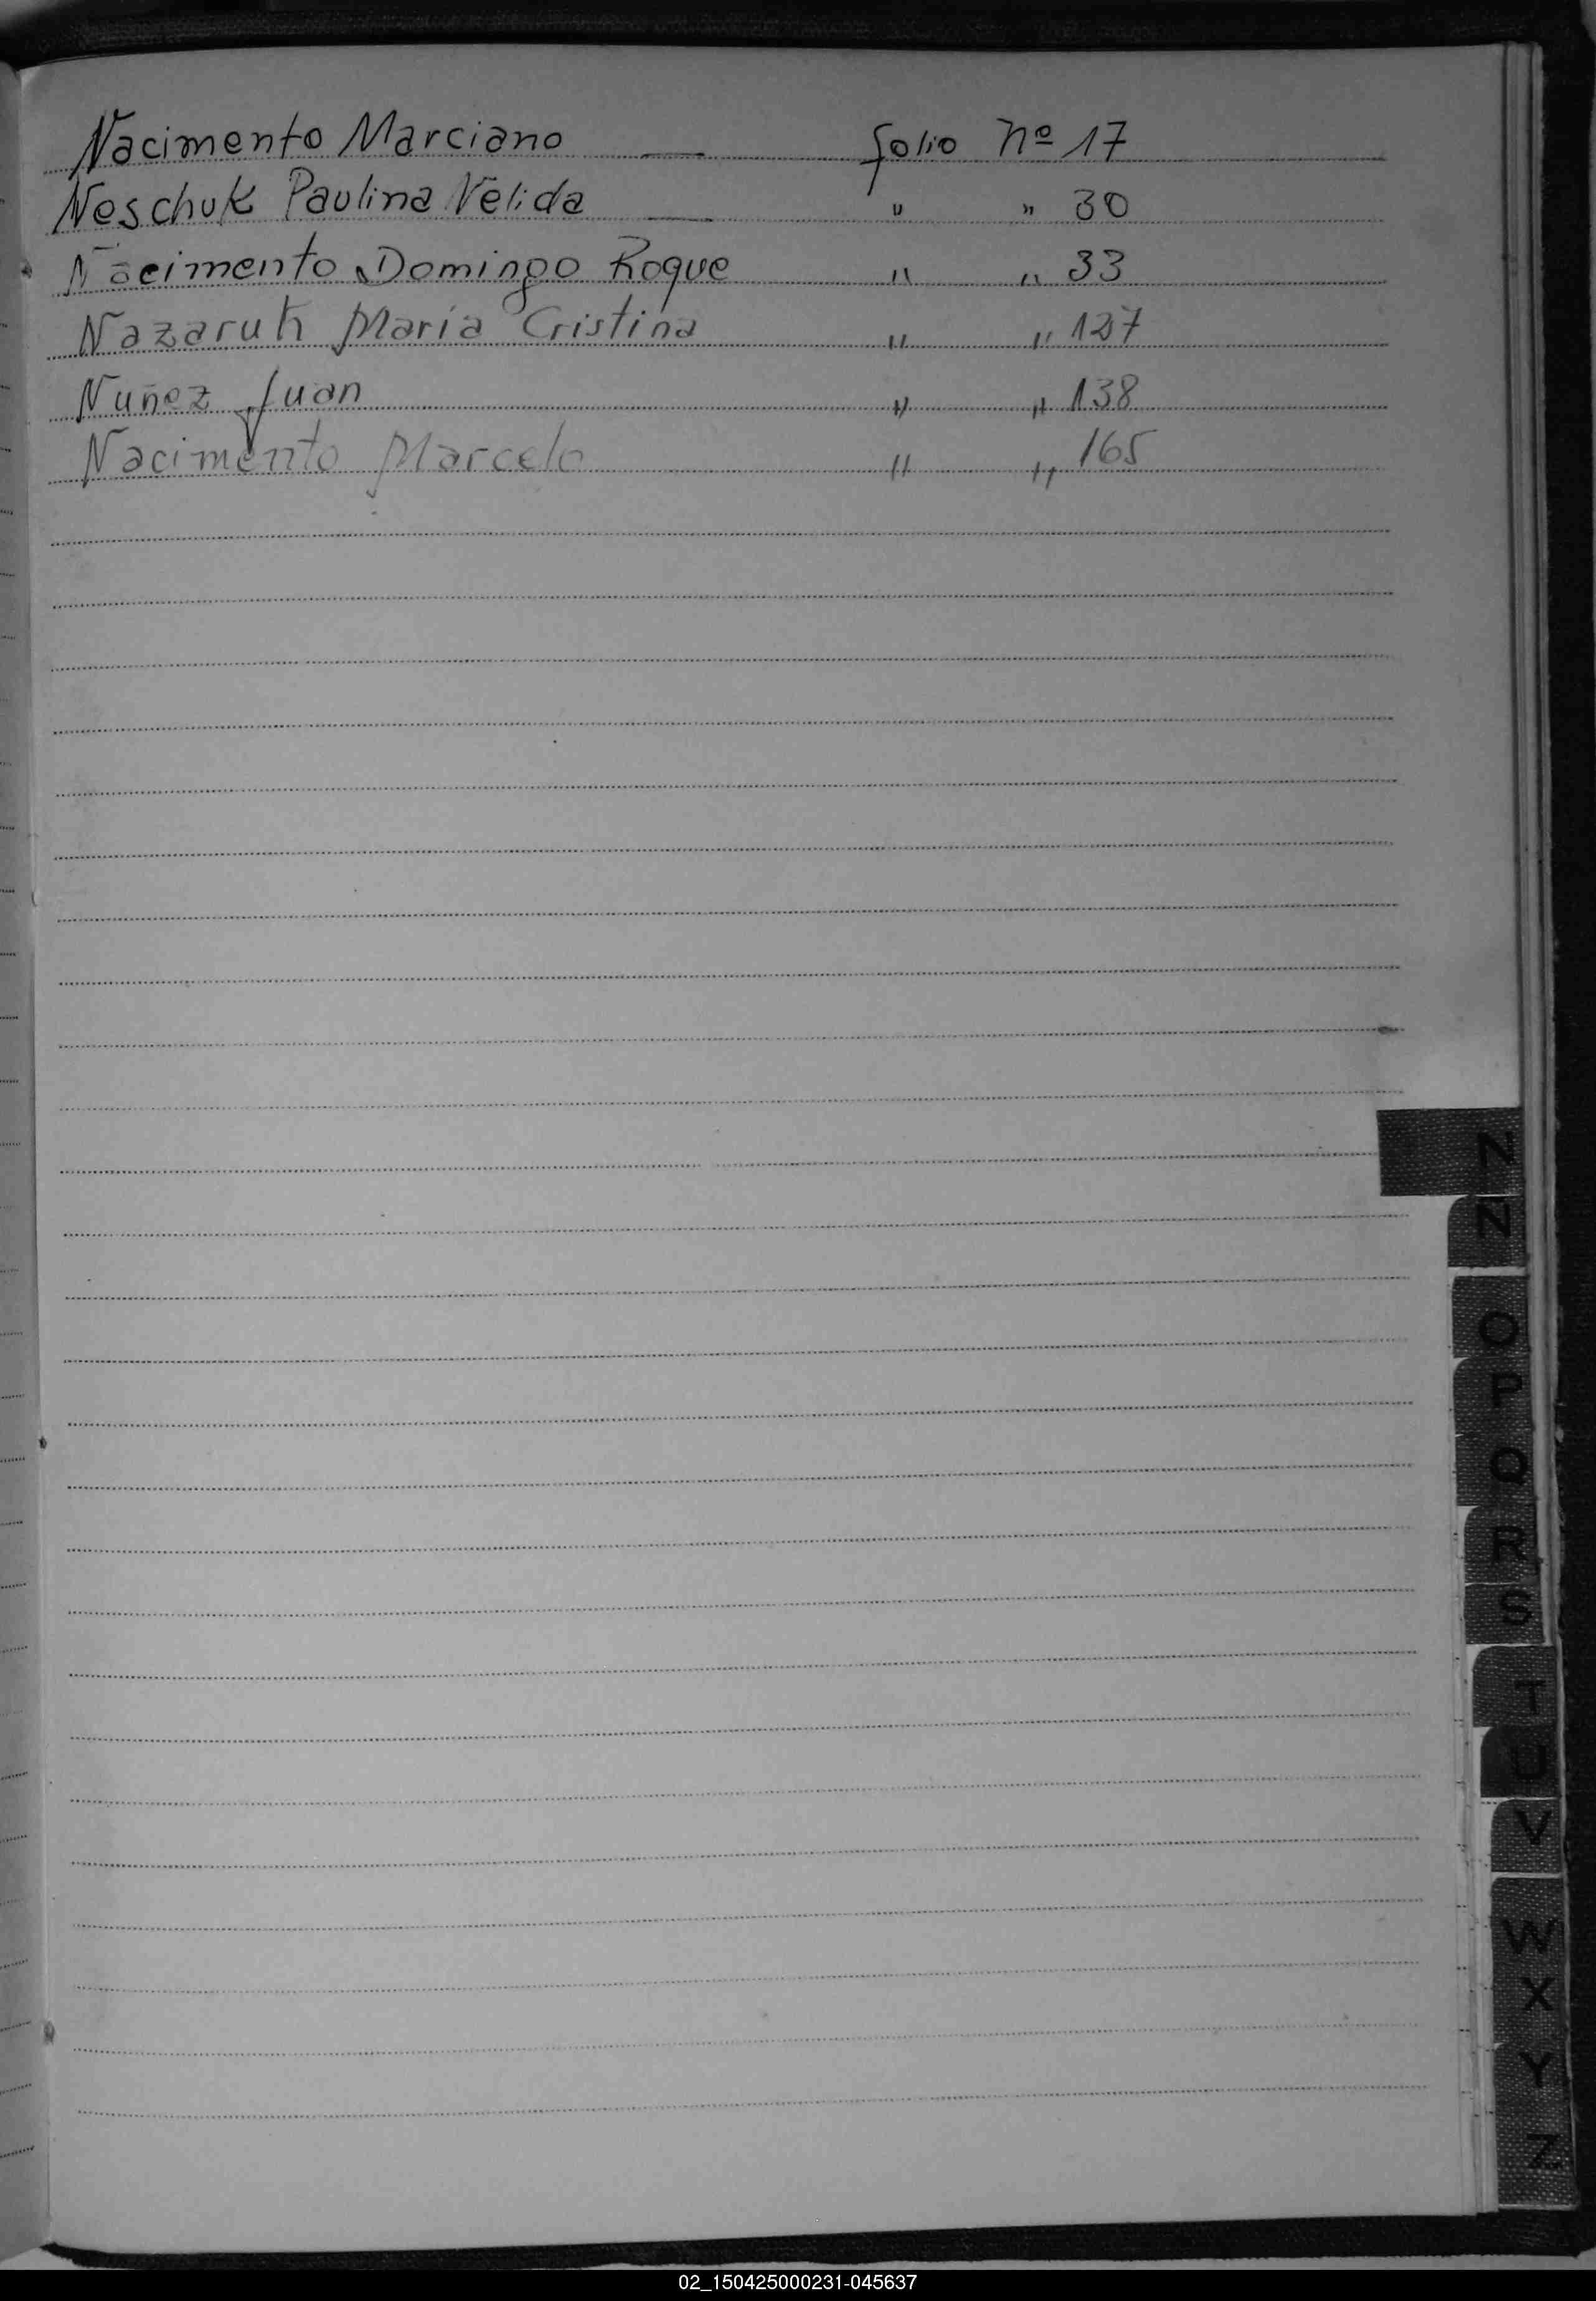 Nacimento Marciano — folio Nº 17
Neschuk Paulina Nélida — " " 30
Nacimento Domingo Roque " " 33
Nazaruk María Cristina " " 127
Nuñez Juan " " 138
Nacimento Marcelo " " 165
N
Ñ
O
P
Q
R
S
T
U
V
W
X
Y
Z
02_150425000231-045637